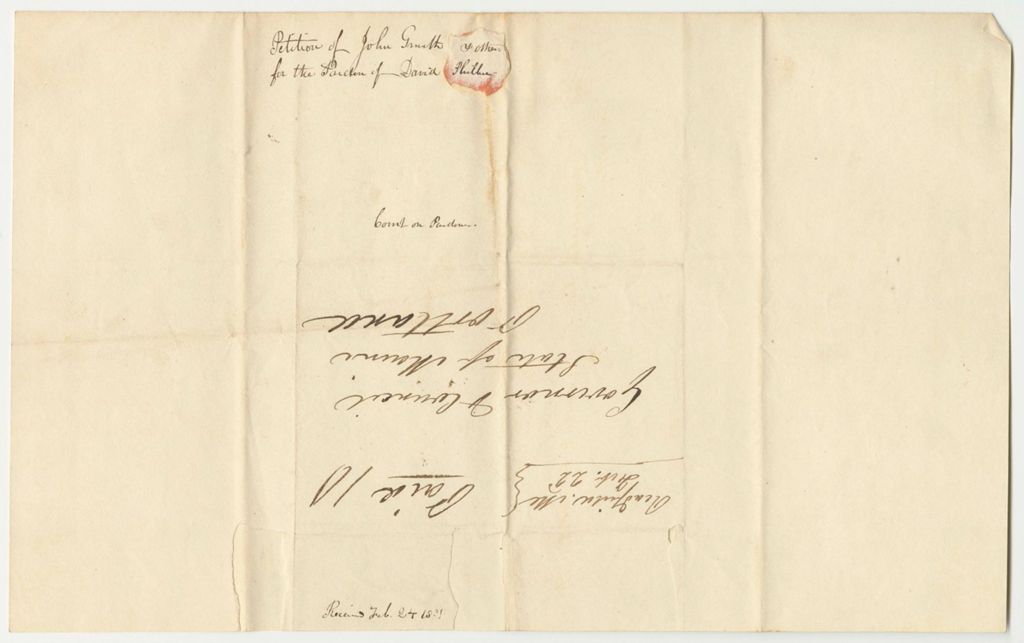 Petition of John Smith & others
for the Pardon of David
Comt on Pardons.
Readfield, Me
Feb. 22
Paid 10
Governor & Council
State of Maine
Portland
Received Feb. 24 1831